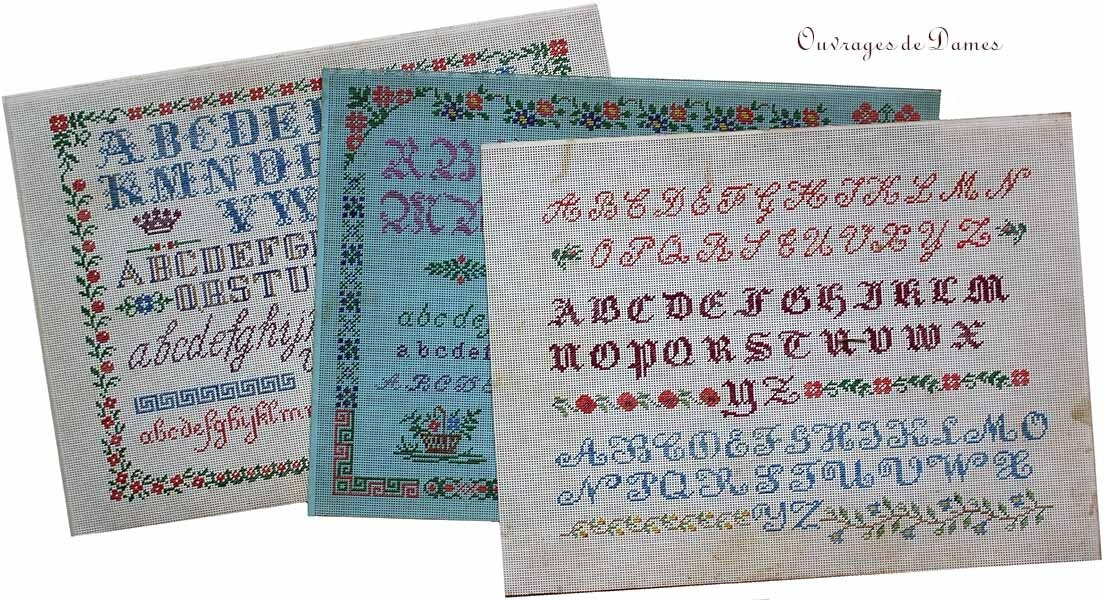 Ouvrages de Dames
ABCDE
KMNO
VW
ABCDEFG
QRSTU
abcdefghij
abcdefghijklm
AB
M
abcde
abcdef
ABCD
ABCDEFGHIKLMN
OPQRSTUVXYZ
ABCDEFGHIKLM
NOPQRSTUVWX
YZ
ABCDEFGHIKLMO
NPQRSTUVWX
YZ